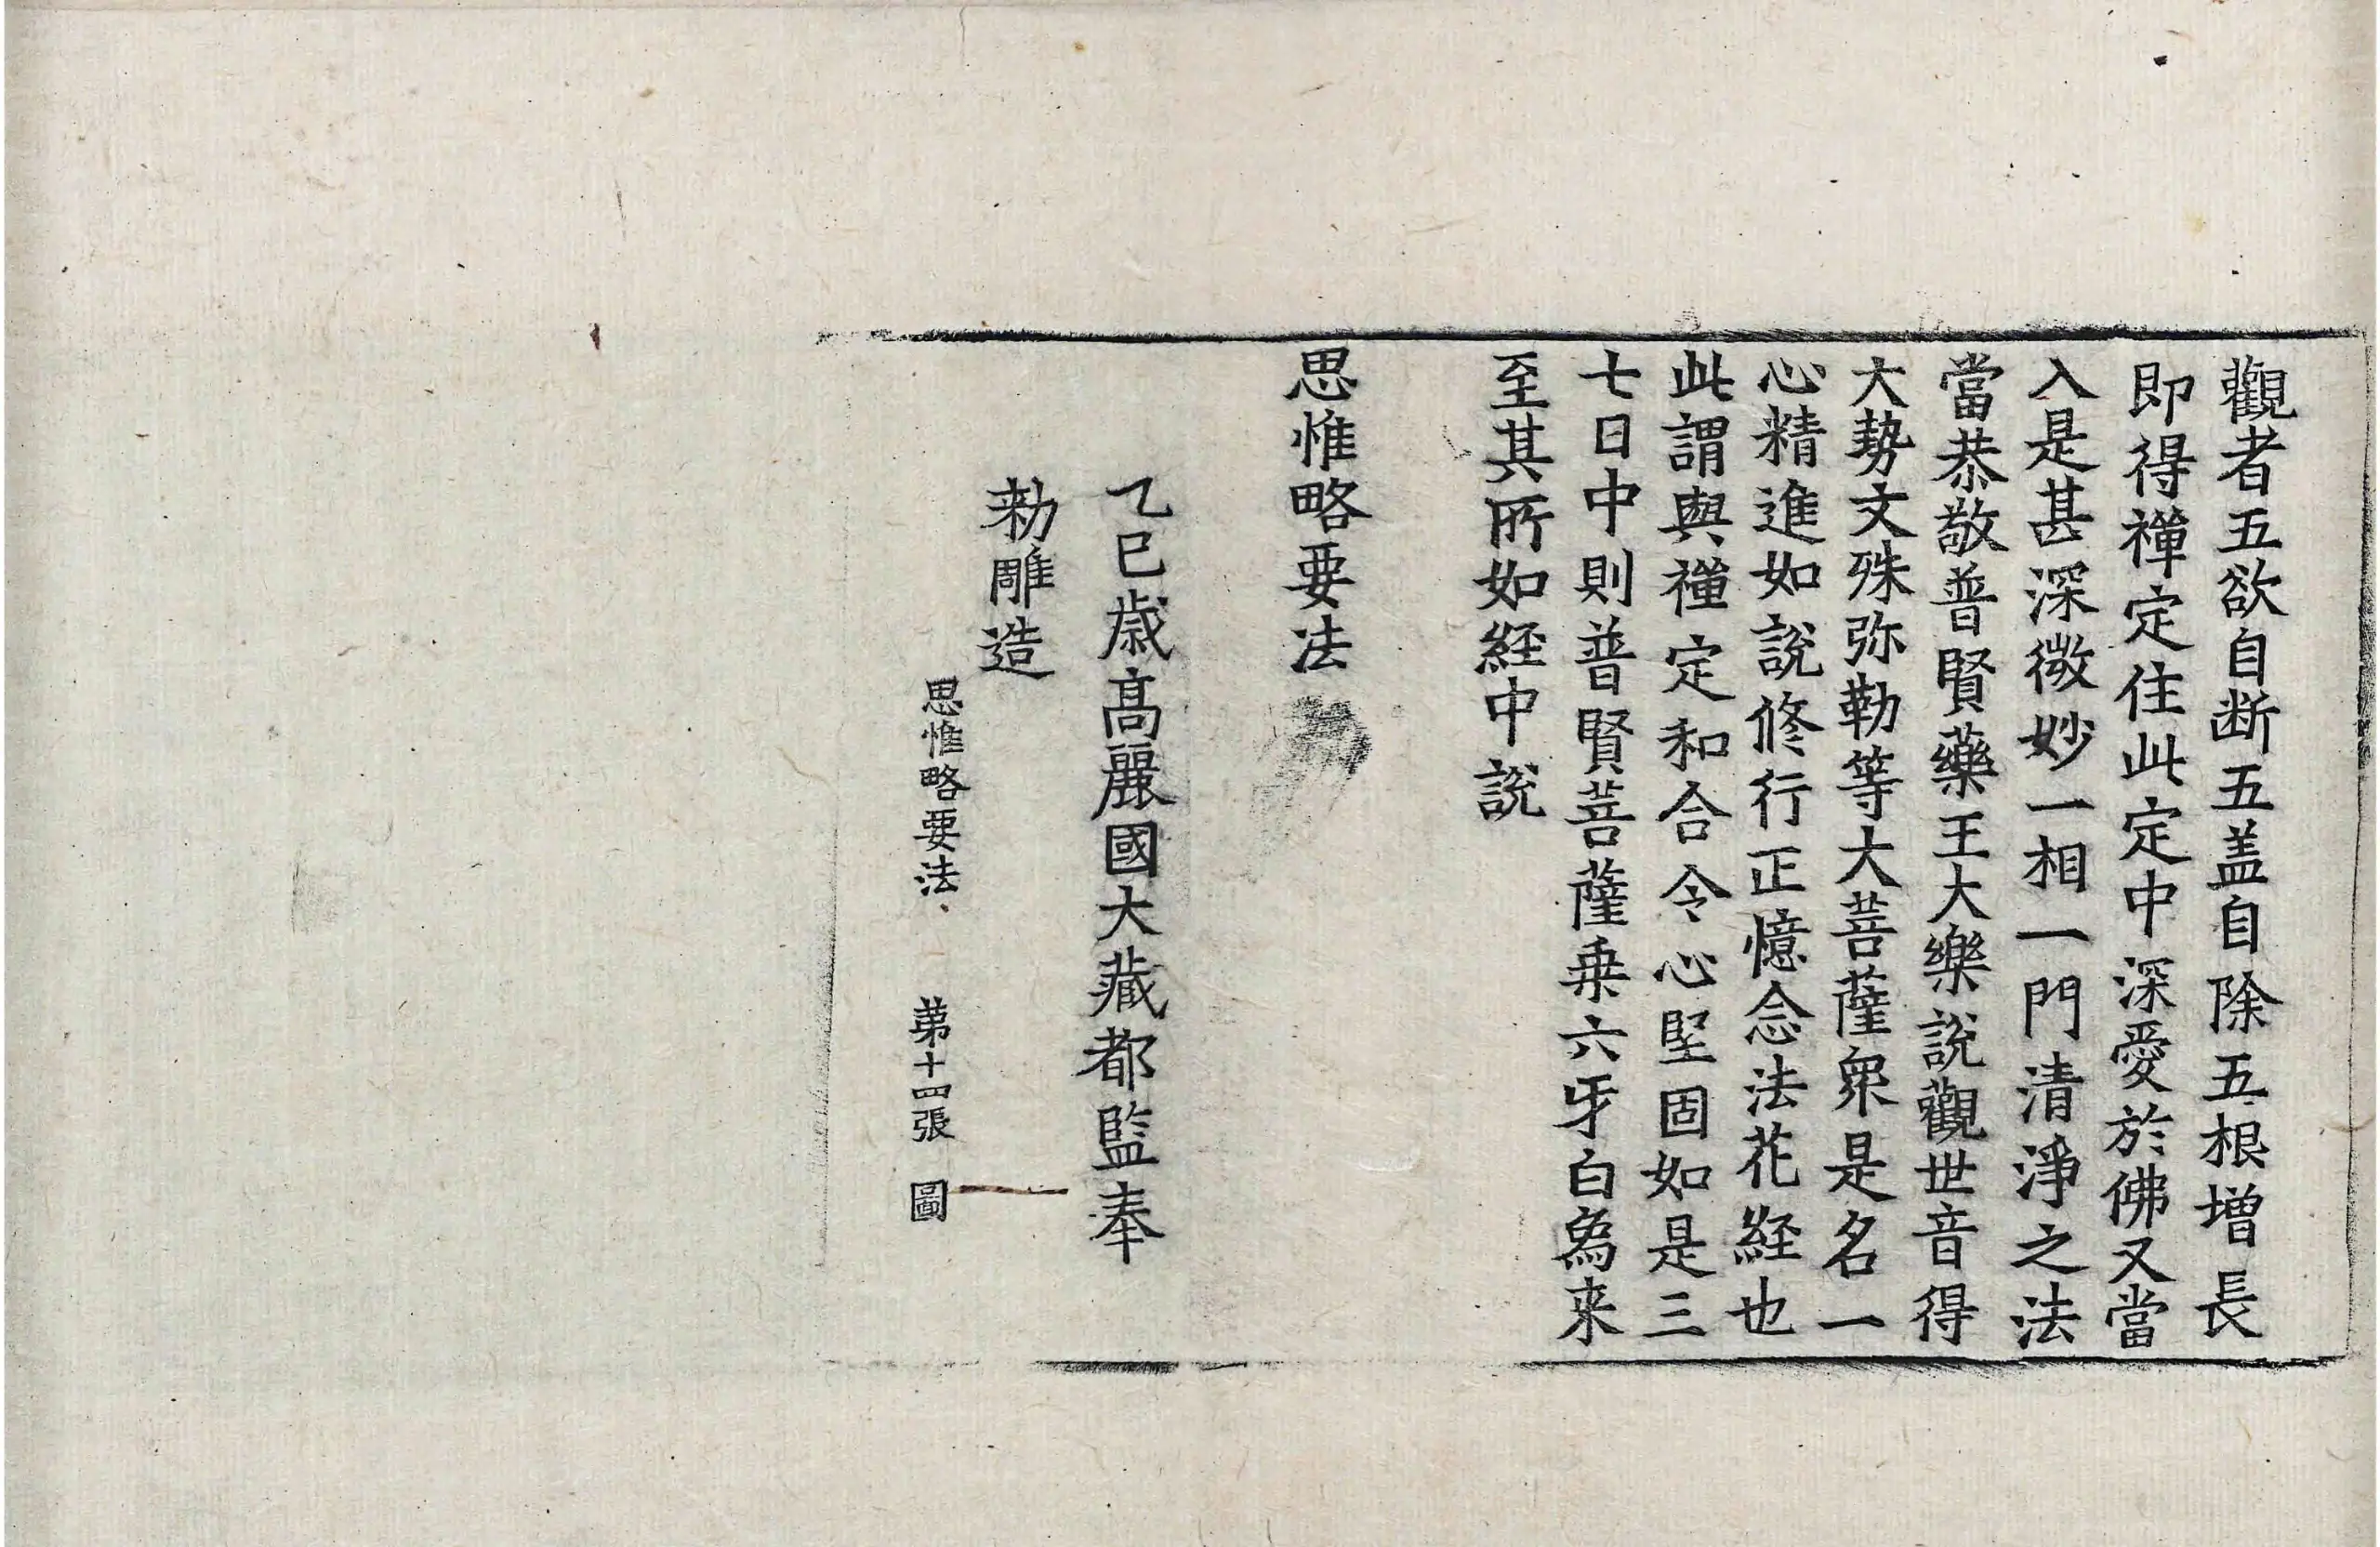 觀者五欲自断五盖自除五根增長
即得禪定住此定中深愛於佛又當
入是甚深微妙一相一門清淨之法
當恭敬普賢藥王大樂說觀世音得
大勢文殊弥勒等大菩薩衆是名一
心精進如說修行正憶念法花経也
此謂與禪定和合令心堅固如是三
七日中則普賢菩薩乗六牙白象来
至其所如経中說
思惟略要法
乙巳歲高麗國大藏都監奉
勑雕造
思惟略要法 第十四張 圖